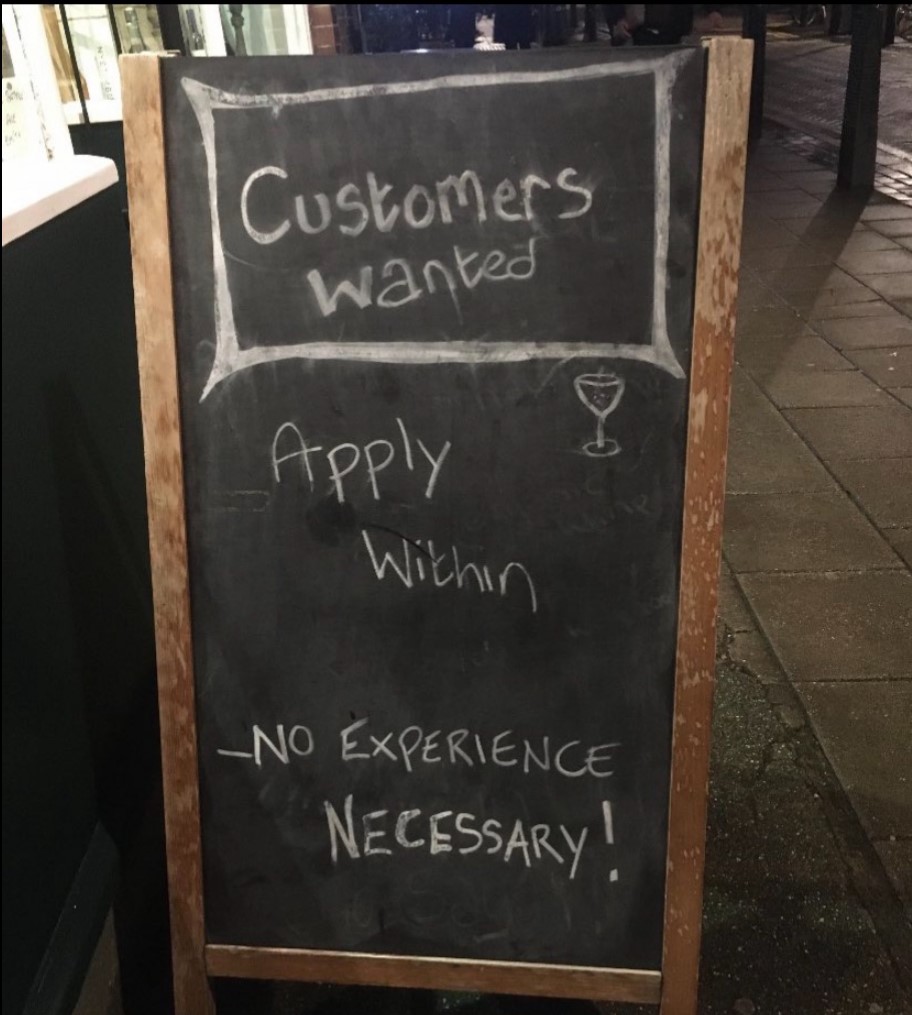 Customers
Wanted
Apply
Within
–NO EXPERIENCE
NECESSARY!